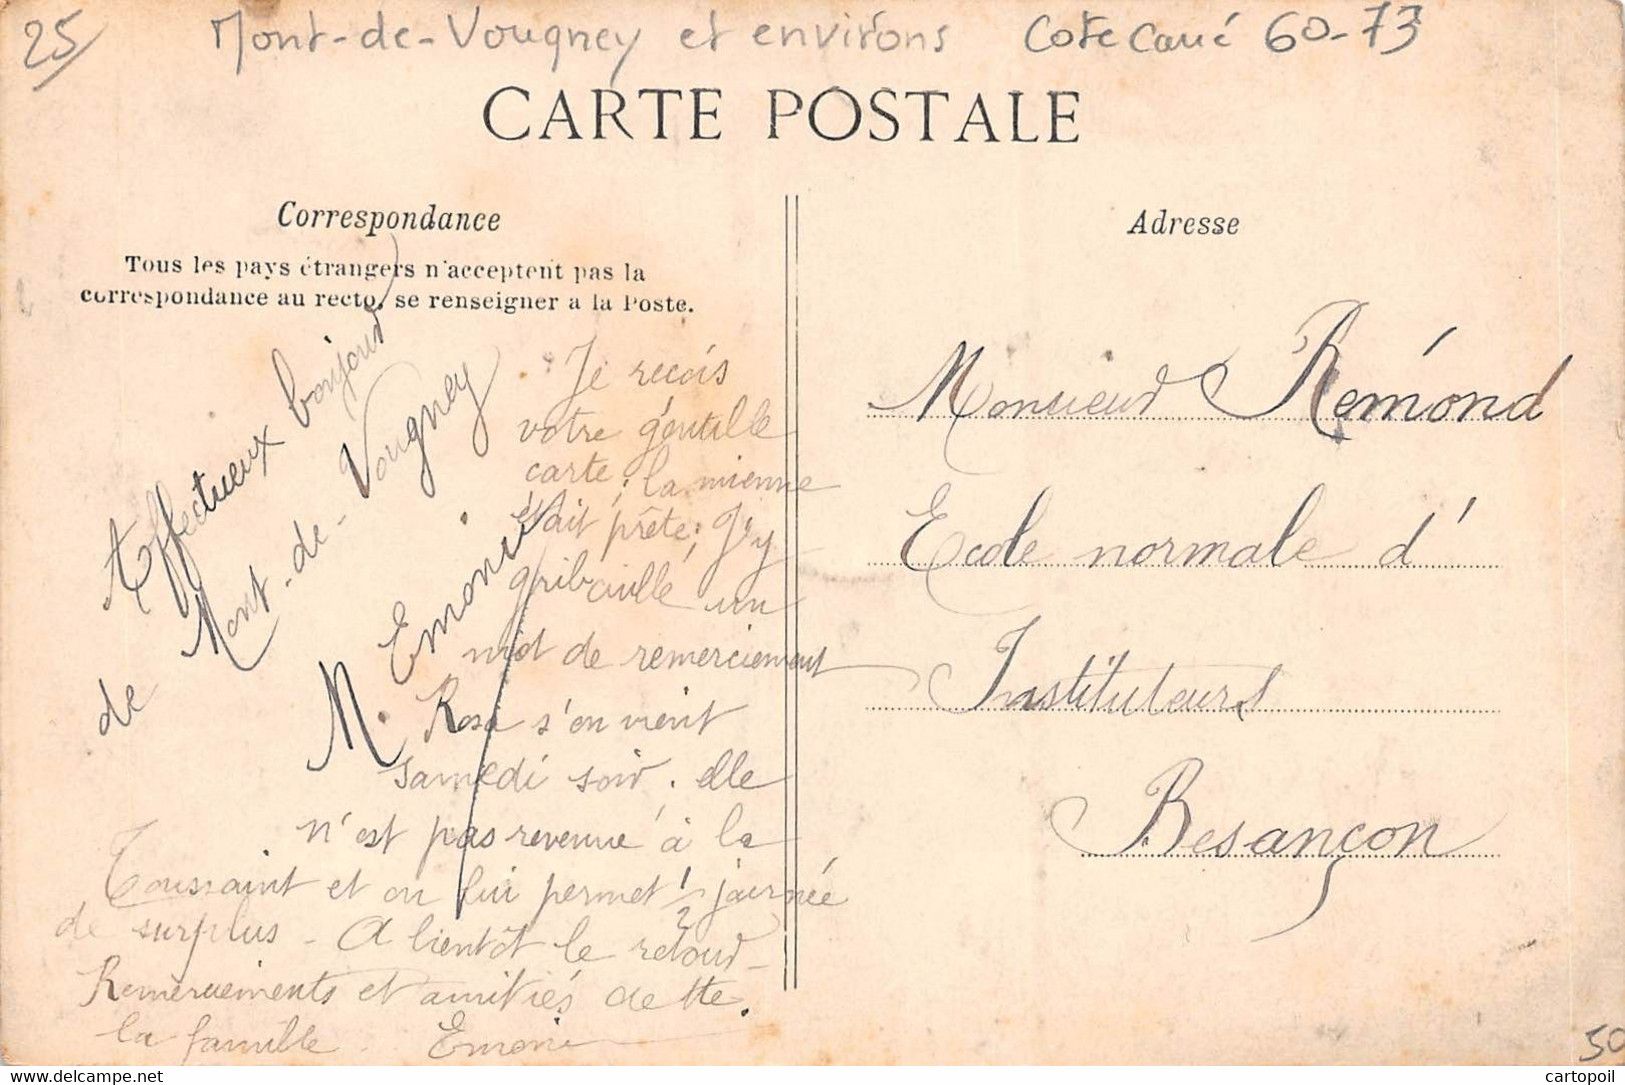 25
Mont-de-Vougney et environs Cote Carré 60-73
CARTE POSTALE
Correspondance
Tous les pays étrangers n'acceptent pas la
correspondance au recto, se renseigner a la Poste.
Affectueux bonjour
de Mont-de-Vougney
M. Emonin
Je reçois
votre gentille
carte; la mienne
était prête; j'y
gribouille un
mot de remerciement
Rosa s'en vient
samedi soir. elle
n'est pas revenue à la
Toussaint et on lui permet 1/2 journée
de surplus - A bientôt le retour -
Remerciements et amitiés de tte
la famille. Emonin
Adresse
Monsieur Rémond
Ecole normale d'
Instituteurs
Besançon
50
cartopoil